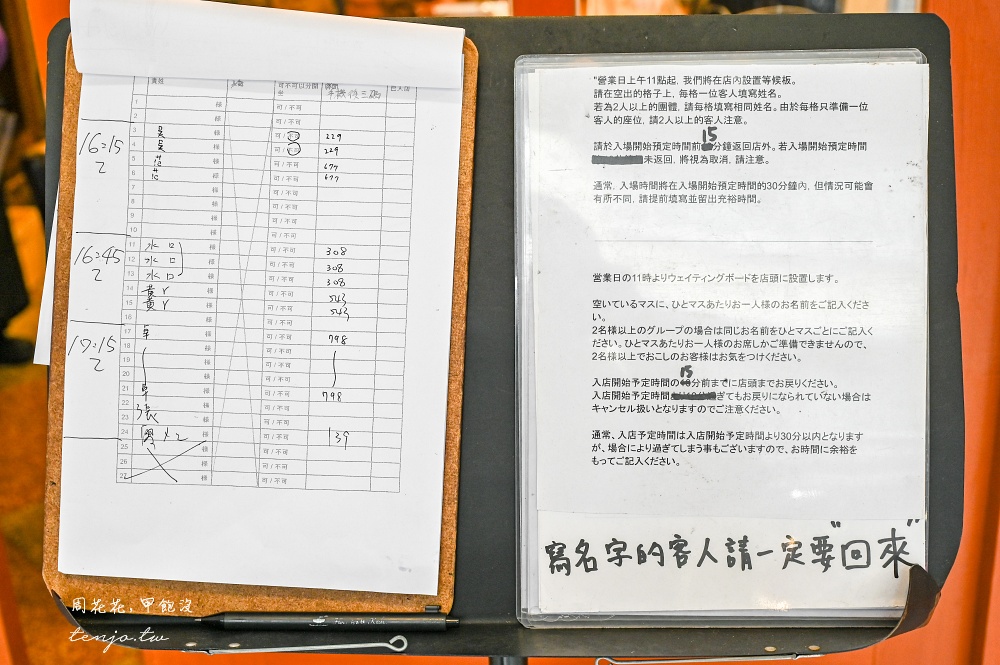 貴姓 人數 可不可以分開坐 手機後三碼 已入店
1 樣 可/不可
2 樣 可/不可
16:15
3 吳 樣 可/不可 229
4 吳 樣 可/不可 229
5 樣 可/不可 677
6 樣 可/不可 677
7 樣 可/不可
8 樣 可/不可
9 樣 可/不可
10 樣 可/不可
16:45
11 水口 樣 可/不可 308
12 水口 樣 可/不可 308
13 水口 樣 可/不可 308
14 黃Y 樣 可/不可 543
15 黃Y 樣 可/不可 543
16 樣 可/不可
17:15
17 卓 樣 可/不可 798
18 樣 可/不可
19 樣 可/不可
20 樣 可/不可
21 卓 樣 可/不可 798
22 樣 可/不可
23 張 樣 可/不可
24 樣 可/不可 139
25 樣 可/不可
26 樣 可/不可
27 樣 可/不可
"營業日上午11點起，我們將在店內設置等候板。
請在空出的格子上，每格一位客人填寫姓名。
若為2人以上的團體，請每格填寫相同姓名。由於每格只準備一位
客人的座位，請2人以上的客人注意。
請於入場開始預定時間前15分鐘返回店外。若入場開始預定時間
未返回，將視為取消，請注意。
通常，入場時間將在入場開始預定時間的30分鐘內，但情況可能會
有所不同，請提前填寫並留出充裕時間。
営業日の11時よりウェイティングボードを店頭に設置します。
空いているマスに、ひとマスあたりお一人様のお名前をご記入くださ
い。
2名様以上のグループの場合は同じお名前をひとマスごとにご記入く
ださい。ひとマスあたりお一人様のお席しかご準備できませんので、
2名様以上でおこしのお客様はお気をつけください。
入店開始予定時間の15分前までに店頭までお戻りください。
入店開始予定時間ぎてもお戻りになられていない場合は
キャンセル扱いとなりますのでご注意ください。
通常、入店予定時間は入店開始予定時間より30分以内となります
が、場合により過ぎてしまう事もございますので、お時間に余裕を
もってご記入ください。
寫名字的客人請一定要"回來"
周花花，甲飽沒
tenjo.tw